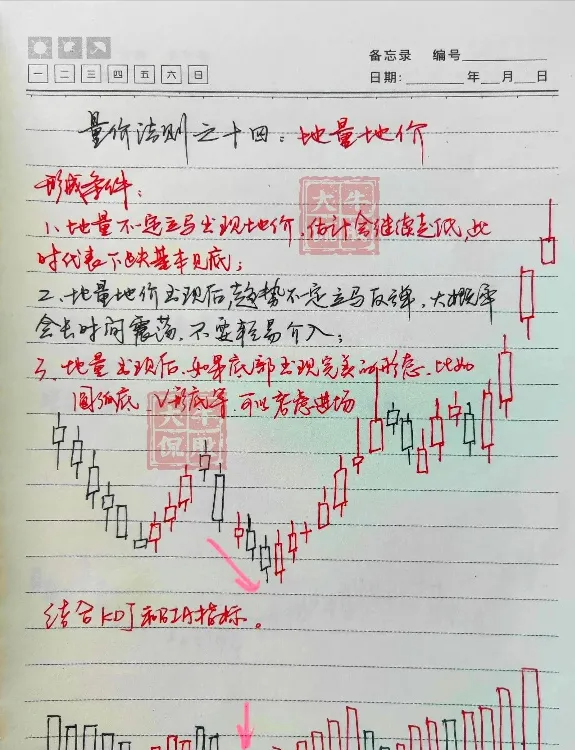 备忘录 编号
一 二 三 四 五 六 日
日期: 年 月 日
量价法则之十四:地量地价
形成条件:
1、地量不一定立马出现地价,估计会继续走低,此
时代表下跌基本见底;
2、地量地价出现后,趋势不一定立马反弹,大概率
会长时间震荡,不要轻易介入;
3、地量出现后,如果底部出现完美的形态,比如
圆弧底、V形底等,可以考虑进场
犬牛
保股
犬牛
保股
结合KDJ和BIA指标。